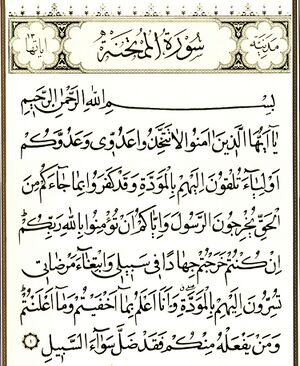 مدينة سورة الممتحنة آياتها ١٣
بسم الله الرحمن الرحيم
يَا أَيُّهَا الَّذِينَ اٰمَنُوا لَا تَتَّخِذُوا عَدُوِّي وَعَدُوَّكُمْ
اَوْلِيَاءَ تُلْقُونَ اِلَيْهِمْ بِالْمَوَدَّةِ وَقَدْ كَفَرُوا بِمَا جَاءَكُمْ مِنَ
الْحَقِّ يُخْرِجُونَ الرَّسُولَ وَاِيَّاكُمْ اَنْ تُؤْمِنُوا بِاللهِ رَبِّكُمْ
اِنْ كُنْتُمْ خَرَجْتُمْ جِهَادًا فِي سَبِيلِي وَابْتِغَاءَ مَرْضَاتِي
تُسِرُّونَ اِلَيْهِمْ بِالْمَوَدَّةِ وَاَنَا اَعْلَمُ بِمَا اَخْفَيْتُمْ وَمَا اَعْلَنْتُمْ
وَمَنْ يَفْعَلْهُ مِنْكُمْ فَقَدْ ضَلَّ سَوَاءَ السَّبِيلِ ١